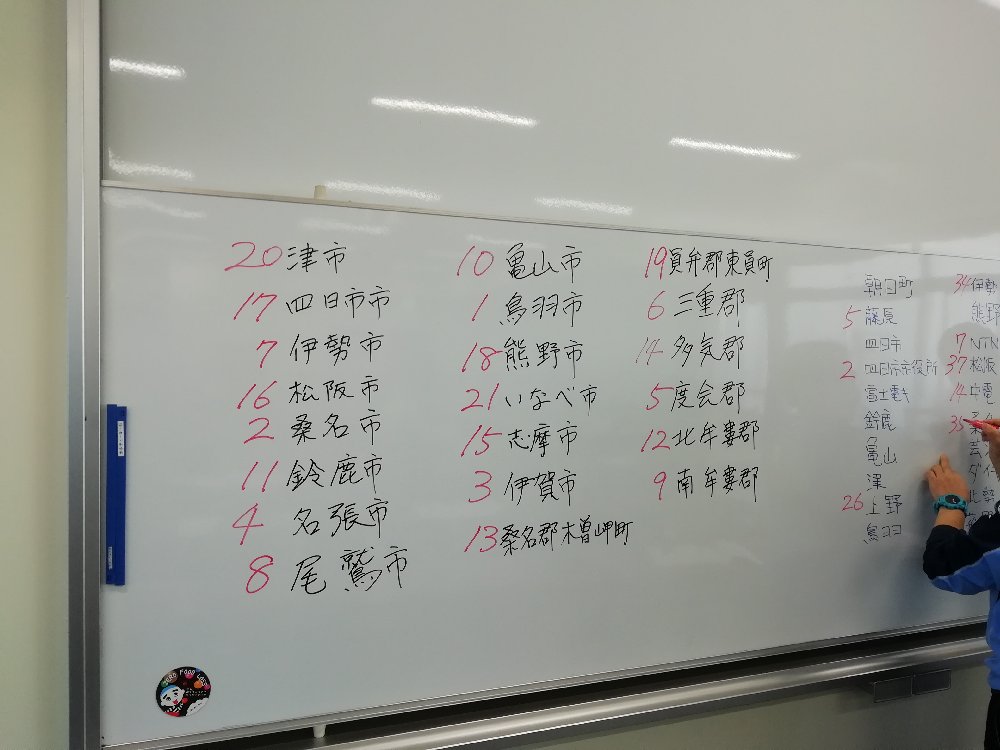 20 津市
17 四日市市
7 伊勢市
16 松阪市
2 桑名市
11 鈴鹿市
4 名張市
8 尾鷲市
10 亀山市
1 鳥羽市
18 熊野市
21 いなべ市
15 志摩市
3 伊賀市
13 桑名郡木曽岬町
19 員弁郡東員町
6 三重郡
14 多気郡
5 度会郡
12 北牟婁郡
9 南牟婁郡
朝日町
5
四日市
2 四日市市役所
富士電機
鈴鹿
亀山
津
26 上野
鳥羽
34 伊勢
熊野
7 NTN
37 松阪
14 中電
35
北勢